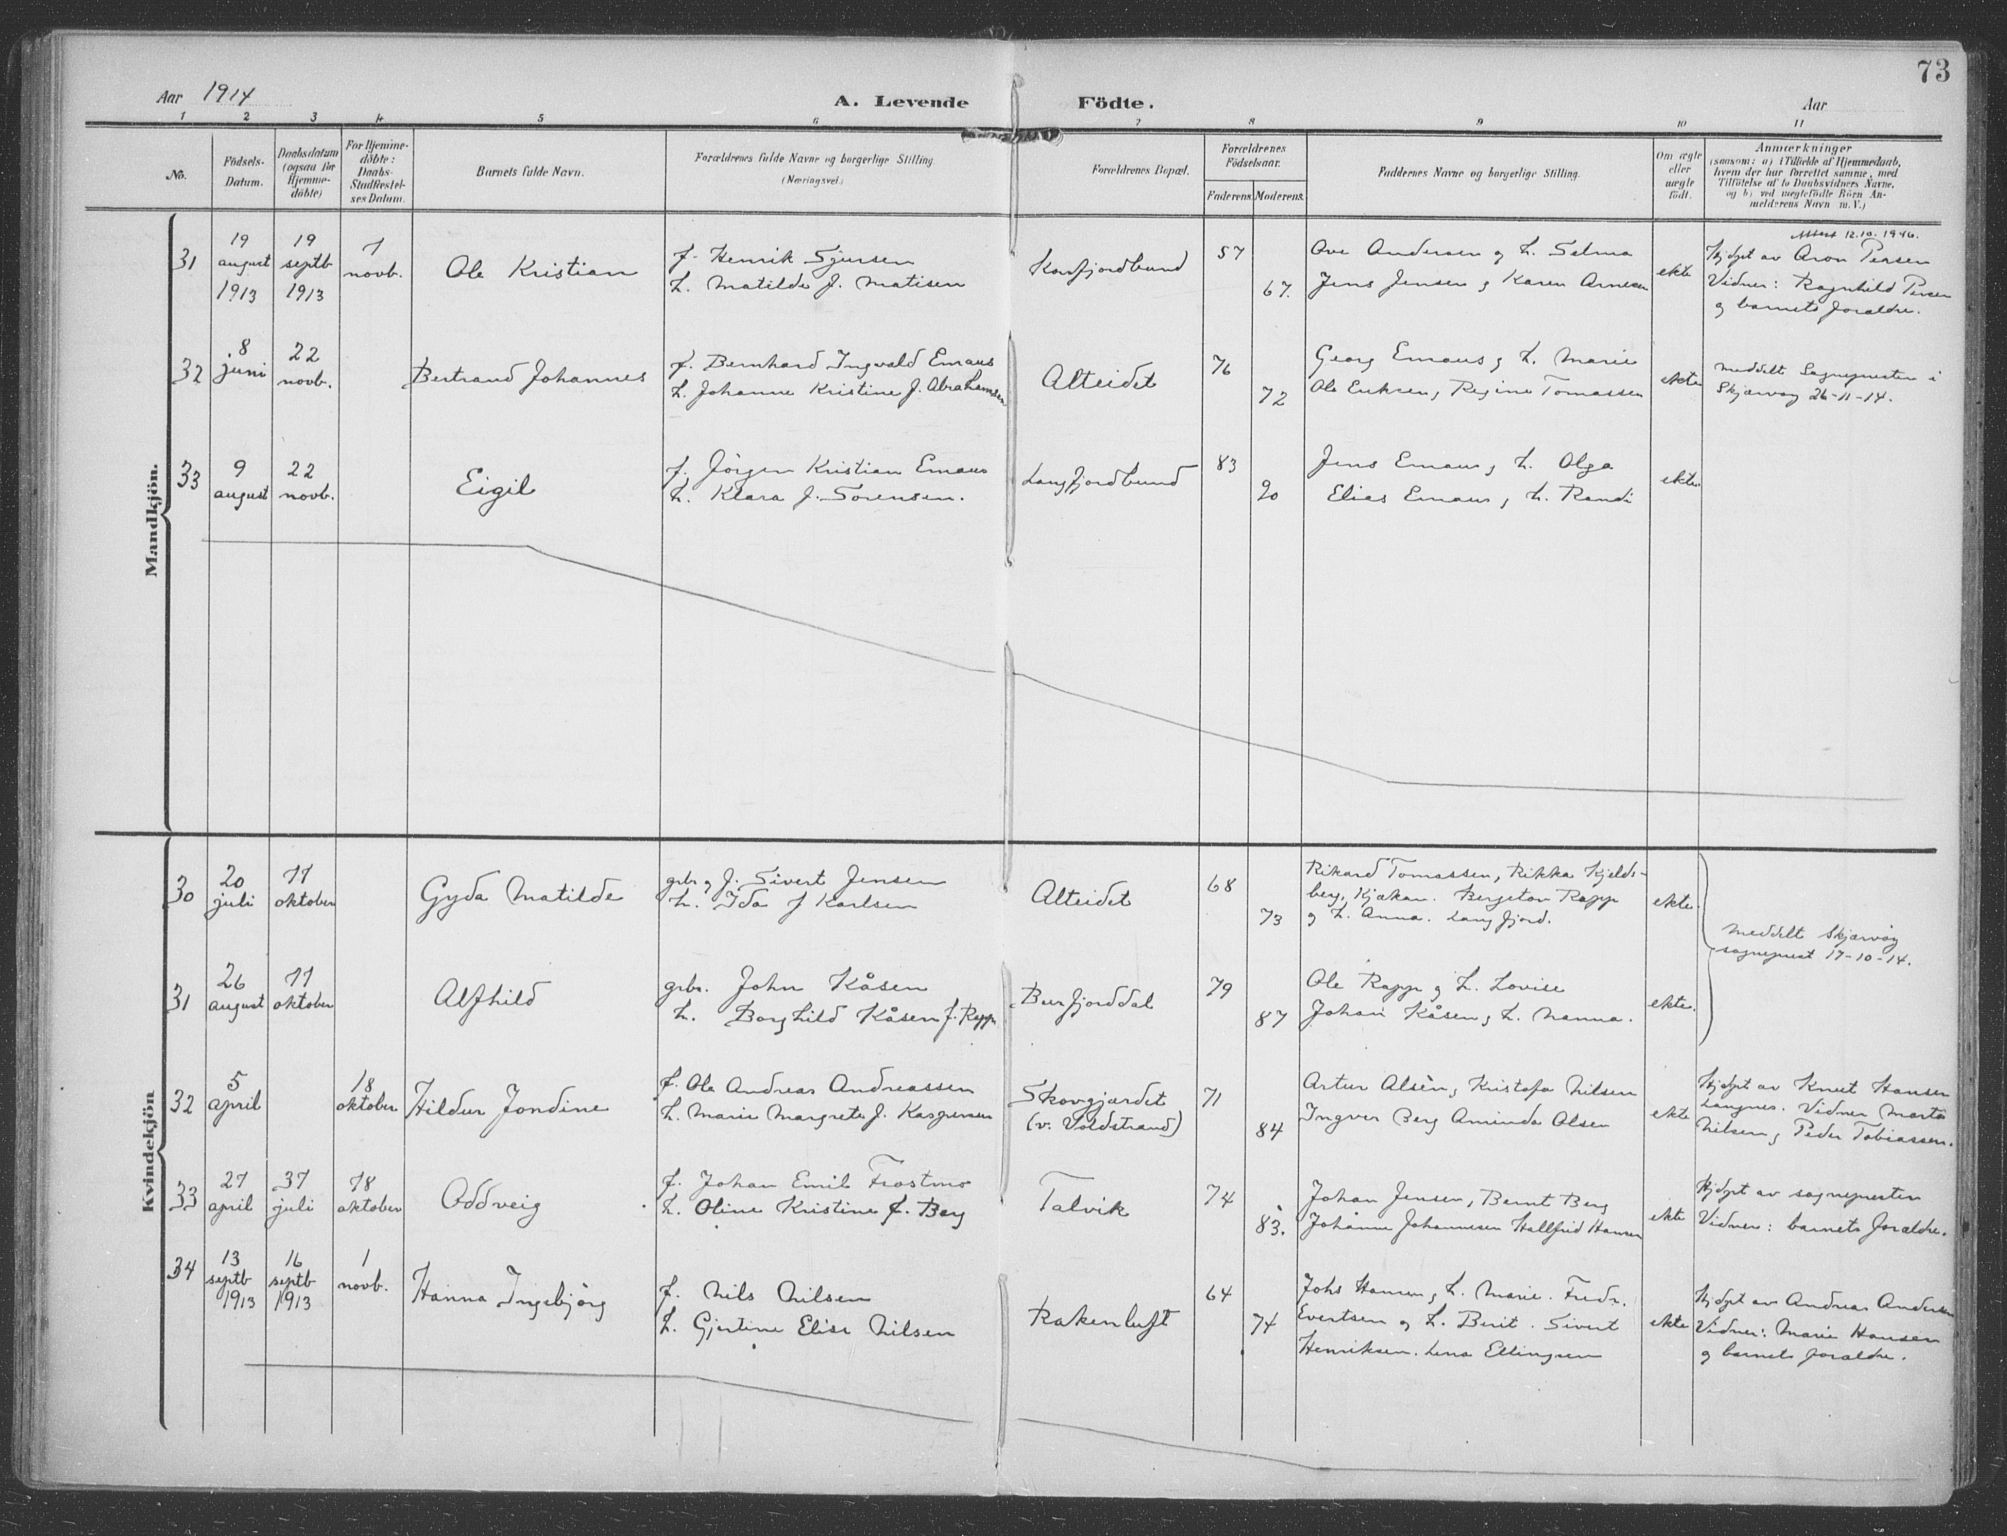 73
Aar 1914
A. Levende Födte.
Aar
1 2 3 4 5 6 7 8 9 10 11
No.
Födsels-Datum.
Daabsdatum (ogsaa för Hjemmedöbte)
For Hjemmedöbte: Daabs-Stadfestelses Datum.
Barnets fulde Navn.
Forældrenes fulde Navne og borgerlige Stilling
(Næringsvei)
Forældrenes Bopæl.
Forældrenes Födselsaar.
Faderens Moderens
Faddernes Navne og borgerlige Stilling.
Om ægte eller uægte födt.
Anmærkninger
(saasom: a) i Tilfælde af Hjemmedaab,
hvem der har forrettet samme, med
Tilföielse af to Daabsvidners Navne,
og b) ved uægtefödte Börn Anmelderens Navn m. V.)
Mandkjön.
31
19 august 1913
19 septb 1913
1 novb.
Ole Kristian
f. Henrik Sjursen
h. Matilde f. Matisen
57
67.
Ove Andersen og h. Selma
Jens Jensen og Karen Arnesen
ekte
Attest 12.10.1946.
Hjdpt av Aron Persen
Vidner: Ragnhild Persen
og barnets foraldre.
32
8 juni
22 novb.
Bertrand Johannes
f. Bernhard Ingvald Emaus
h. Johanne Kristine f. Abrahamsen
Alteidet
76
72
Georg Emaus og h. Marie
Ole Eriksen, Regine Tomassen
ekte
meddelt Sognepresten i
Skjærvøy 26-11-14.
33
9 august
22 novb.
Eigil
f. Jörgen Kristian Emaus
h. Klara f. Sorensen.
Langfjordbund
83
90
Jens Emaus og h. Olga
Elias Emaus, h. Randi
ekte.
Kvindekjön
30
20 juli
11 oktober
Gyda Matilde
grbr og f. Sivert Jensen
h. Ida f Karlsen
Alteidet
68
73
Rikard Tomassen, Rikka Kjelds-
berg, Kjækan. Bergeton Rapp
og h. Anna. Langfjord.
ekte.
meddelt Skjærvøy
sogneprest 17-10-14.
31
26 august
11 oktober
Alfhild
grbr. John Kåsen
h. Borghild Kåsen f. Rapp
Burfjorddal
79
87
Ole Rapp og h. Lovise
Johan Kåsen, h. Nanna.
ekte.
32
5 april
18 oktober
Hildur Jondine
f. Ole Andreas Andreassen
h. Marie Margrete f. Kaspersen
Skovgjærdet
(v. Voldstrand)
71
84
Artur Alsèn, Kristofa Nilsen
Ingver Berg Aminda Olsen
ekte
Hjdpt av Knut Hansen
Langnes. Vidner Marta
Nilsen, Peder Tobiassen.
33
27 april
31 juli
18 oktober
Oddveig
f. Johan Emil Frostmo
h. Oline Kristine f. Berg
Talvik
74
83.
Johan Jensen, Bernt Berg
Johanne Johannesen Hallfrid Hansen
ekte
Hjdpt av sognepresten
Vidner: barnets foraldre.
34
13 septb 1913
16 septb 1913
1 novb.
Hanna Ingebjörg
f. Nils Nilsen
h. Gjertine Elise Nilsen
Rakenluft
64
74
Johs Hansen, h. Marie. Fredr.
Evertsen og h. Berit. Sivert
Henriksen. Lena Ellingsen
ekte
Hjdpt av Andreas Andersen
Vidner: Marie Hansen
og barnets foraldre.